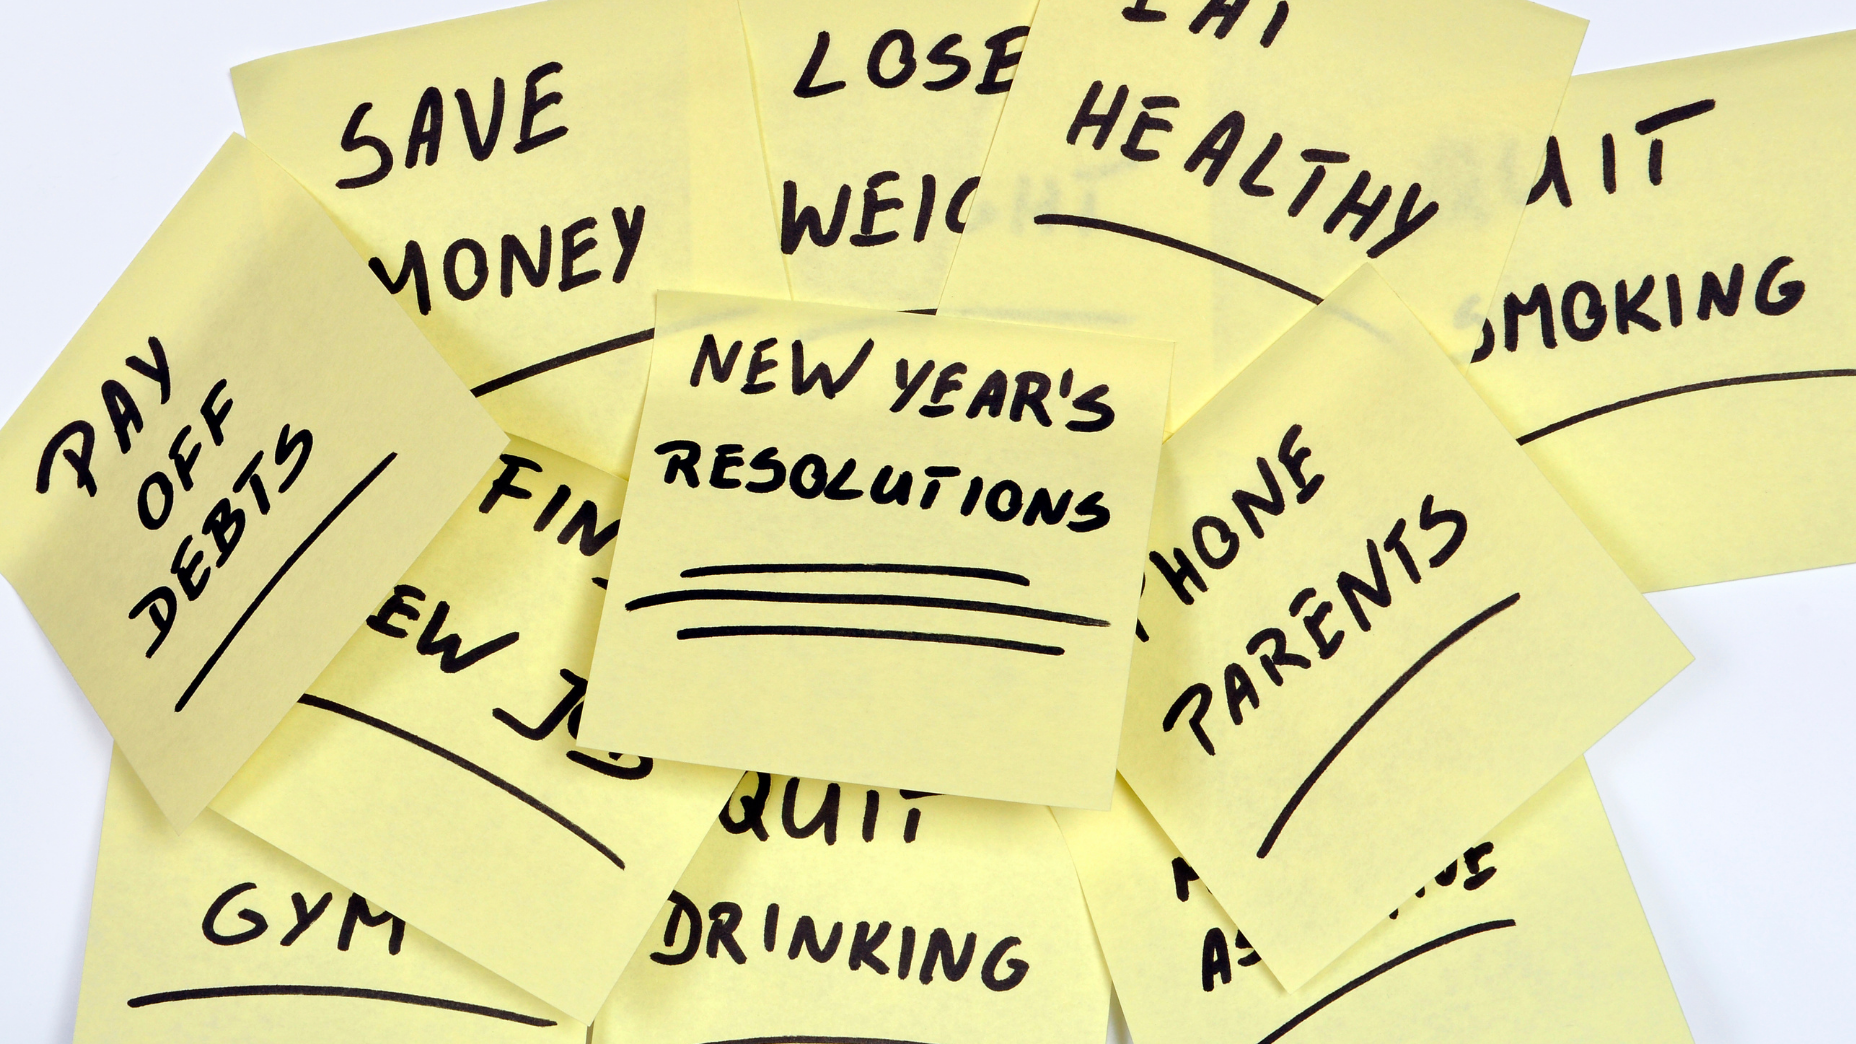 SAVE
MONEY
LOSE
WEIG
EAT
HEALTHY
UIT
SMOKING
PAY
OFF
DEBTS
FIN
EW JOB
NEW YEAR'S
RESOLUTIONS
PHONE
PARENTS
GYM
QUIT
DRINKING